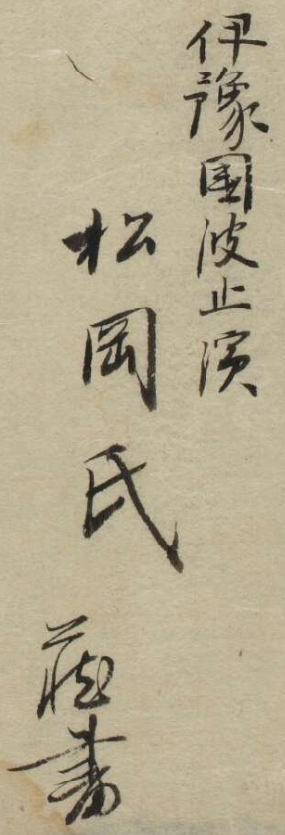 伊豫國波止濱
松岡氏
蔵書